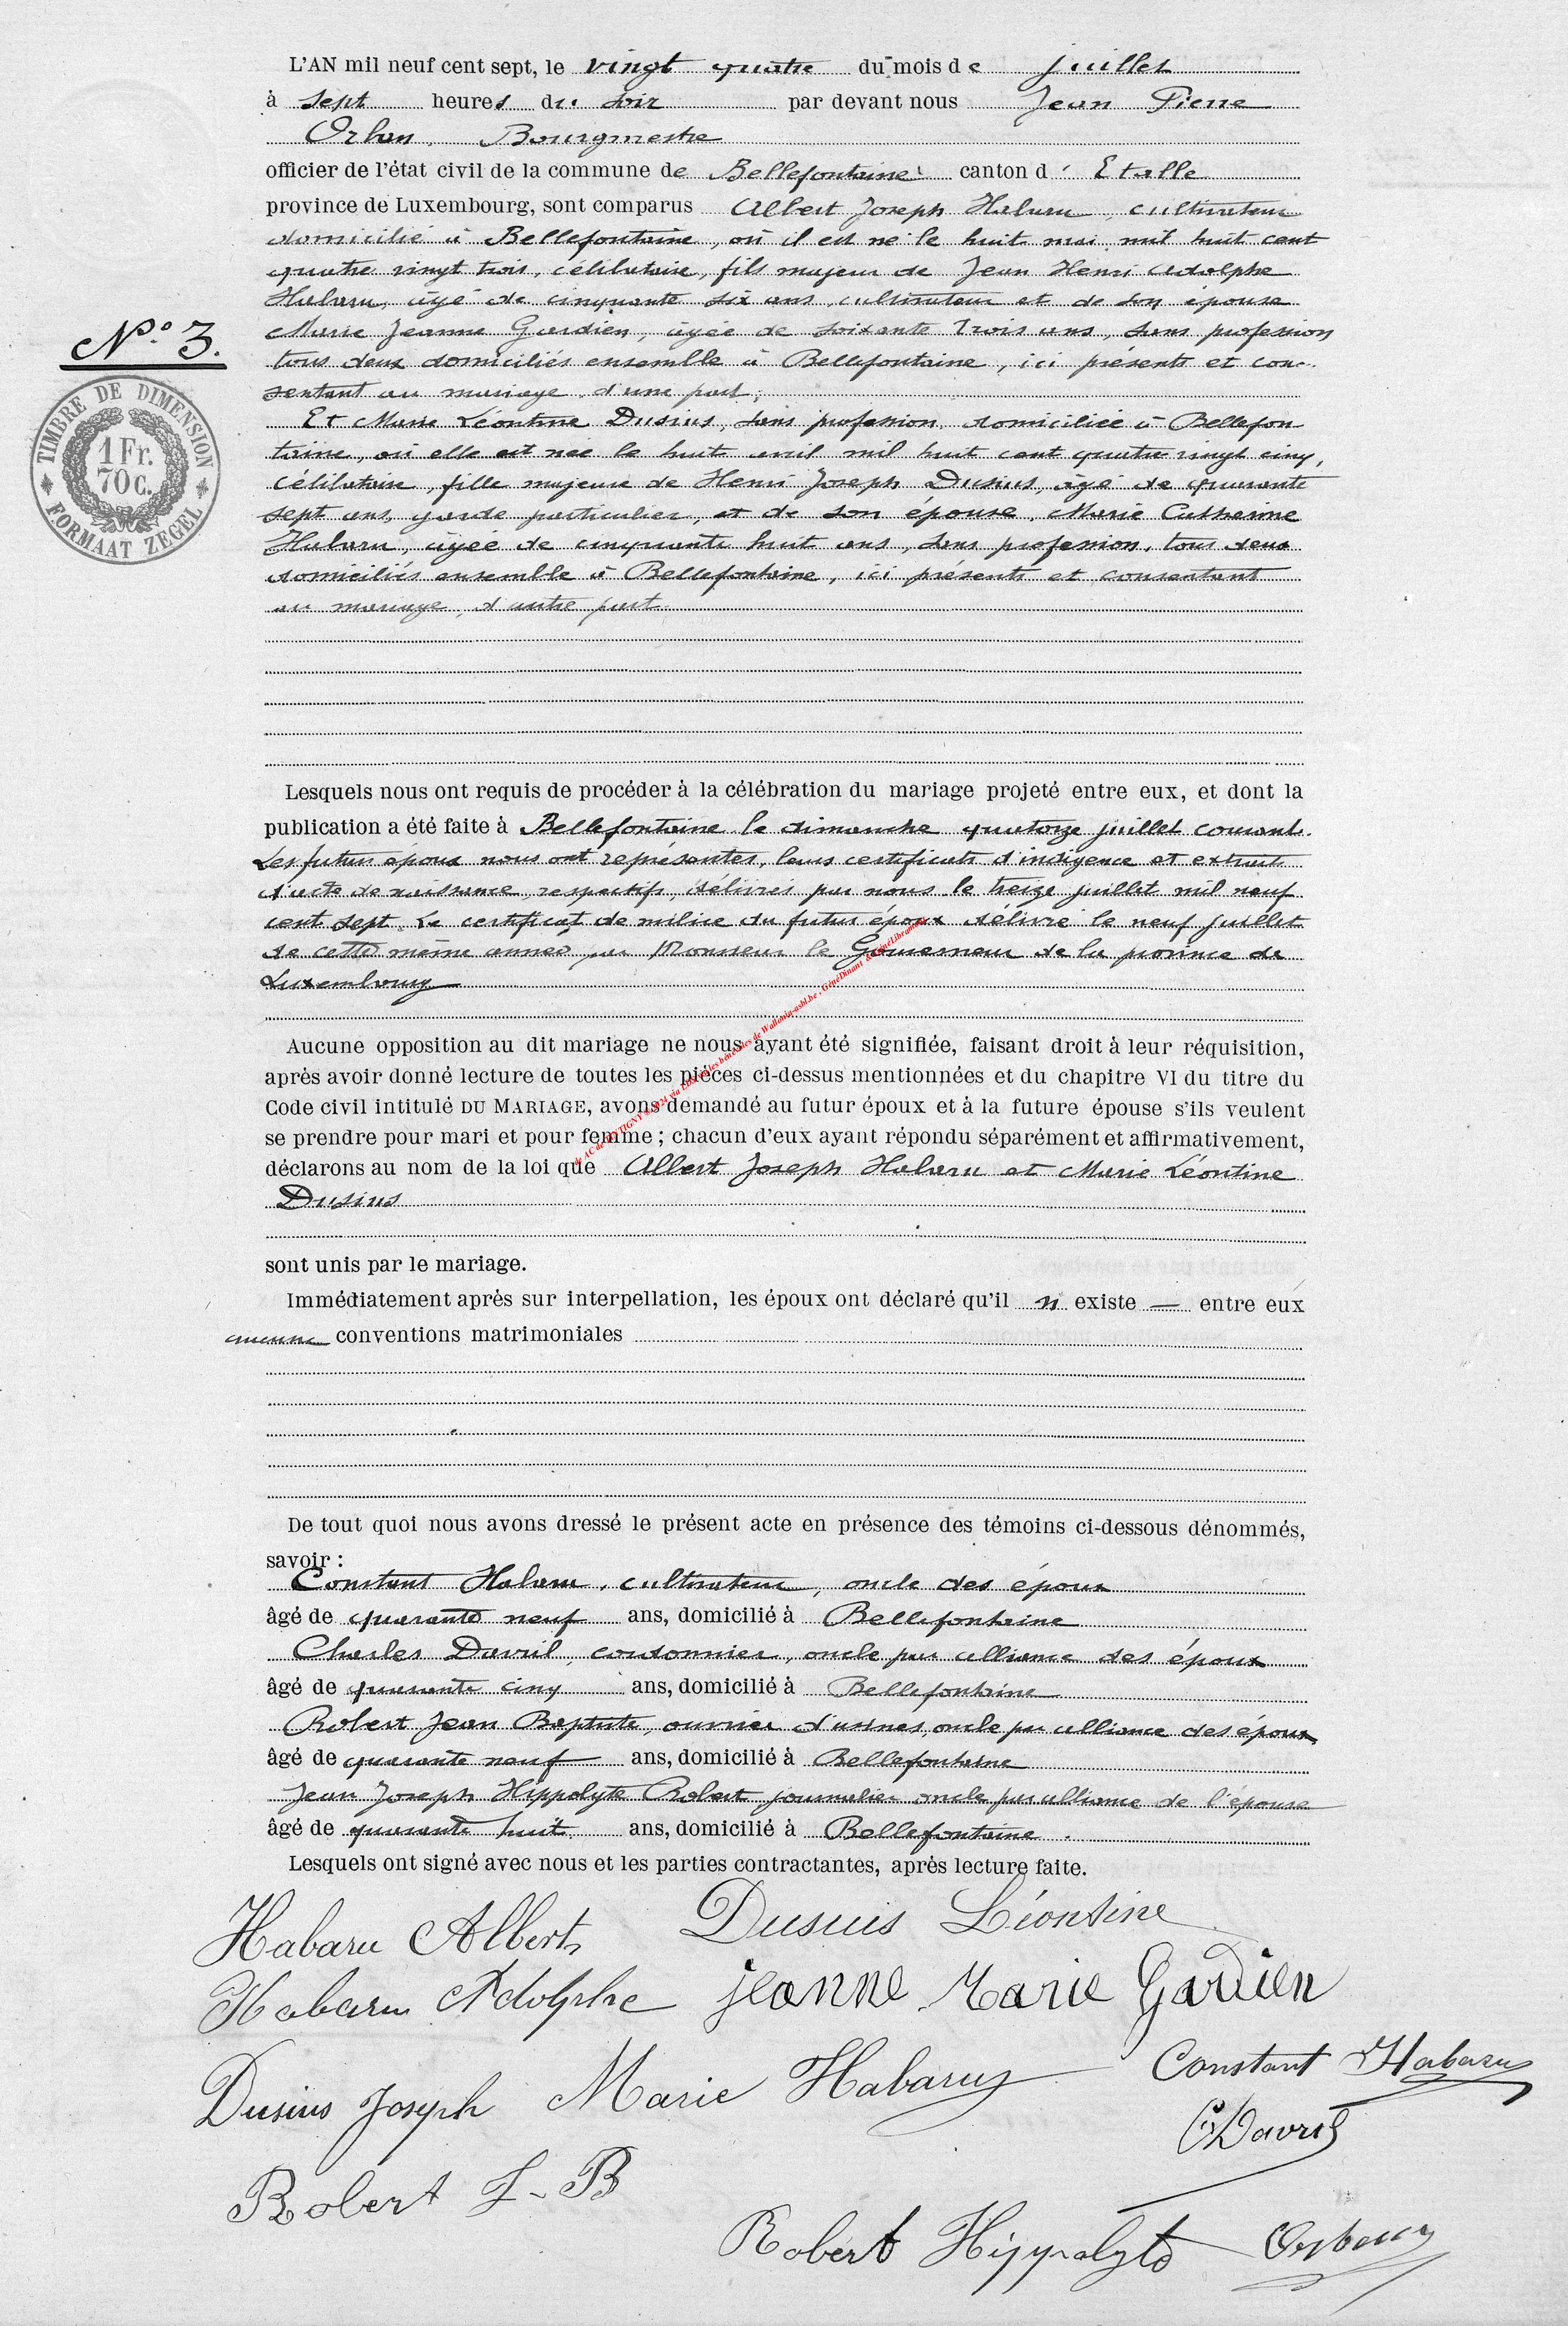 L'AN mil neuf cent sept, le vingt quatre du mois de juillet
à sept heures du soir par devant nous Jean Pierre
Orban, Bourgmestre
officier de l'état civil de la commune de Bellefontaine canton d' Etalle
province de Luxembourg, sont comparus Albert Joseph Habaru, cultivateur
domicilié à Bellefontaine, où il est né le huit mai mil huit cent
quatre vingt trois, célibataire, fils majeur de Jean Henri Adolphe
Habaru, âgé de cinquante six ans, cultivateur et de son épouse
Marie Jeanne Gardien, âgée de soixante trois ans, sans profession
tous deux domiciliés ensemble à Bellefontaine, ici présents et con-
sentant au mariage, d'une part;
N° 3.
TIMBRE DE DIMENSION
1 Fr.
70 C.
FORMAAT ZEGEL
Et Marie Léontine Dusius, sans profession, domiciliée à Bellefon
taine, où elle est née le huit avril mil huit cent quatre vingt cinq,
célibataire, fille majeure de Henri Joseph Dusius, âgé de quarante
sept ans, garde particulier, et de son épouse, Marie Catherine
Habaru, âgée de cinquante huit ans, sans profession, tous deux
domiciliés ensemble à Bellefontaine, ici présents et consentant
au mariage, d'autre part
Lesquels nous ont requis de procéder à la célébration du mariage projeté entre eux, et dont la
publication a été faite à Bellefontaine le dimanche quatorze juillet courant.
Les futurs époux nous ont représentés, leurs certificats d'indigence et extraits
d'acte de naissance, respectifs, délivrés par nous le treize juillet mil neuf
cent sept. Le certificat de milice du futur époux délivré le neuf juillet
de cette même année par Monsieur le Gouverneur de la province de
Luxembourg
Aucune opposition au dit mariage ne nous ayant été signifiée, faisant droit à leur réquisition,
après avoir donné lecture de toutes les pièces ci-dessus mentionnées et du chapitre VI du titre du
Code civil intitulé DU MARIAGE, avons demandé au futur époux et à la future épouse s'ils veulent
se prendre pour mari et pour femme ; chacun d'eux ayant répondu séparément et affirmativement,
déclarons au nom de la loi que Albert Joseph Habaru et Marie Léontine
Dusius
sont unis par le mariage.
Immédiatement après sur interpellation, les époux ont déclaré qu'il n' existe — entre eux
aucune conventions matrimoniales
De tout quoi nous avons dressé le présent acte en présence des témoins ci-dessous dénommés,
savoir :
Constant Habaru, cultivateur, oncle des époux
âgé de quarante neuf ans, domicilié à Bellefontaine
Charles Davril, cordonnier, oncle par alliance des époux
âgé de quarante cinq ans, domicilié à Bellefontaine
Robert Jean Baptiste, ouvrier d'usines, oncle par alliance des époux
âgé de quarante neuf ans, domicilié à Bellefontaine
Jean Joseph Hippolyte Robert journalier oncle par alliance de l'épouse
âgé de quarante huit ans, domicilié à Bellefontaine.
Lesquels ont signé avec nous et les parties contractantes, après lecture faite.
Habaru Albert Dusius Léontine
Habaru Adolphe jeanne Marie Gardien
Dusius Joseph Marie Habaru Constant Habaru
C Davril
Robert J-B
Robert Hippolyte Orban